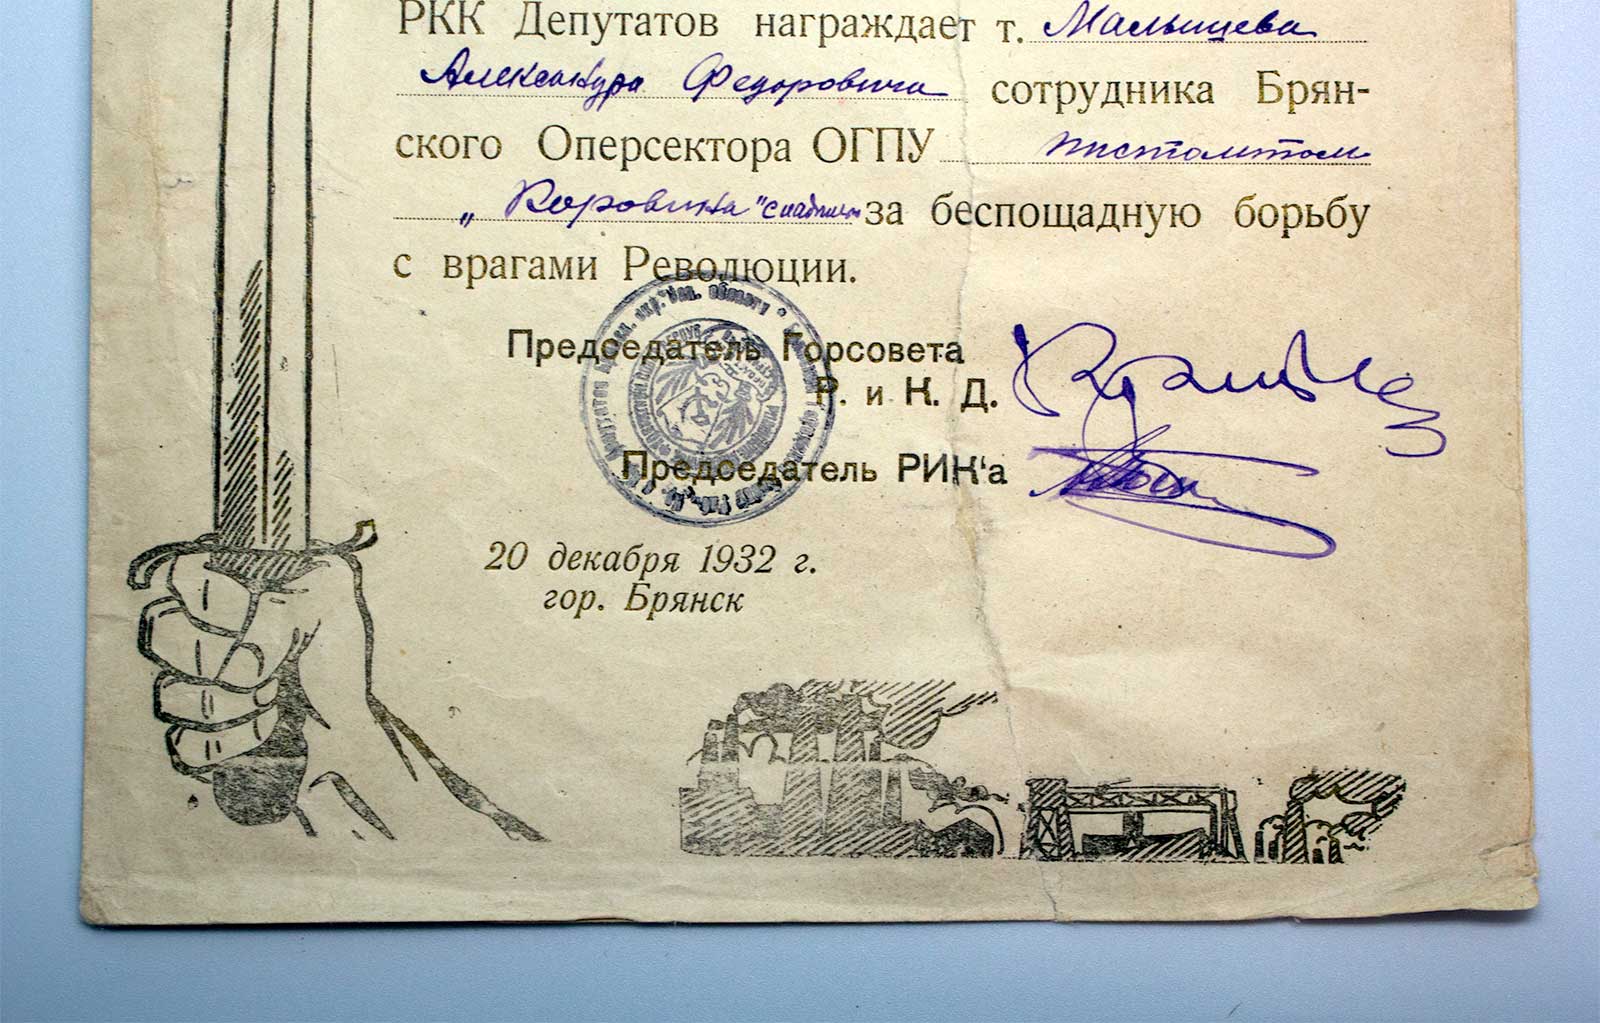 РКК Депутатов награждает т. Малышева
Александра Федоровича сотрудника Брян-
ского Оперсектора ОГПУ пистолетом
„Коровина" с надписью за беспощадную борьбу
с врагами Революции.
Председатель Горсовета
Р. и К. Д.
Председатель РИК'а
20 декабря 1932 г.
гор. Брянск